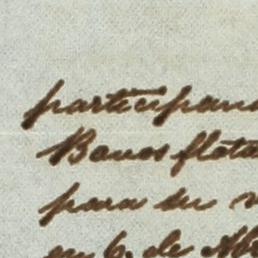 participan
Banos flota
para su
en 6. de Ab